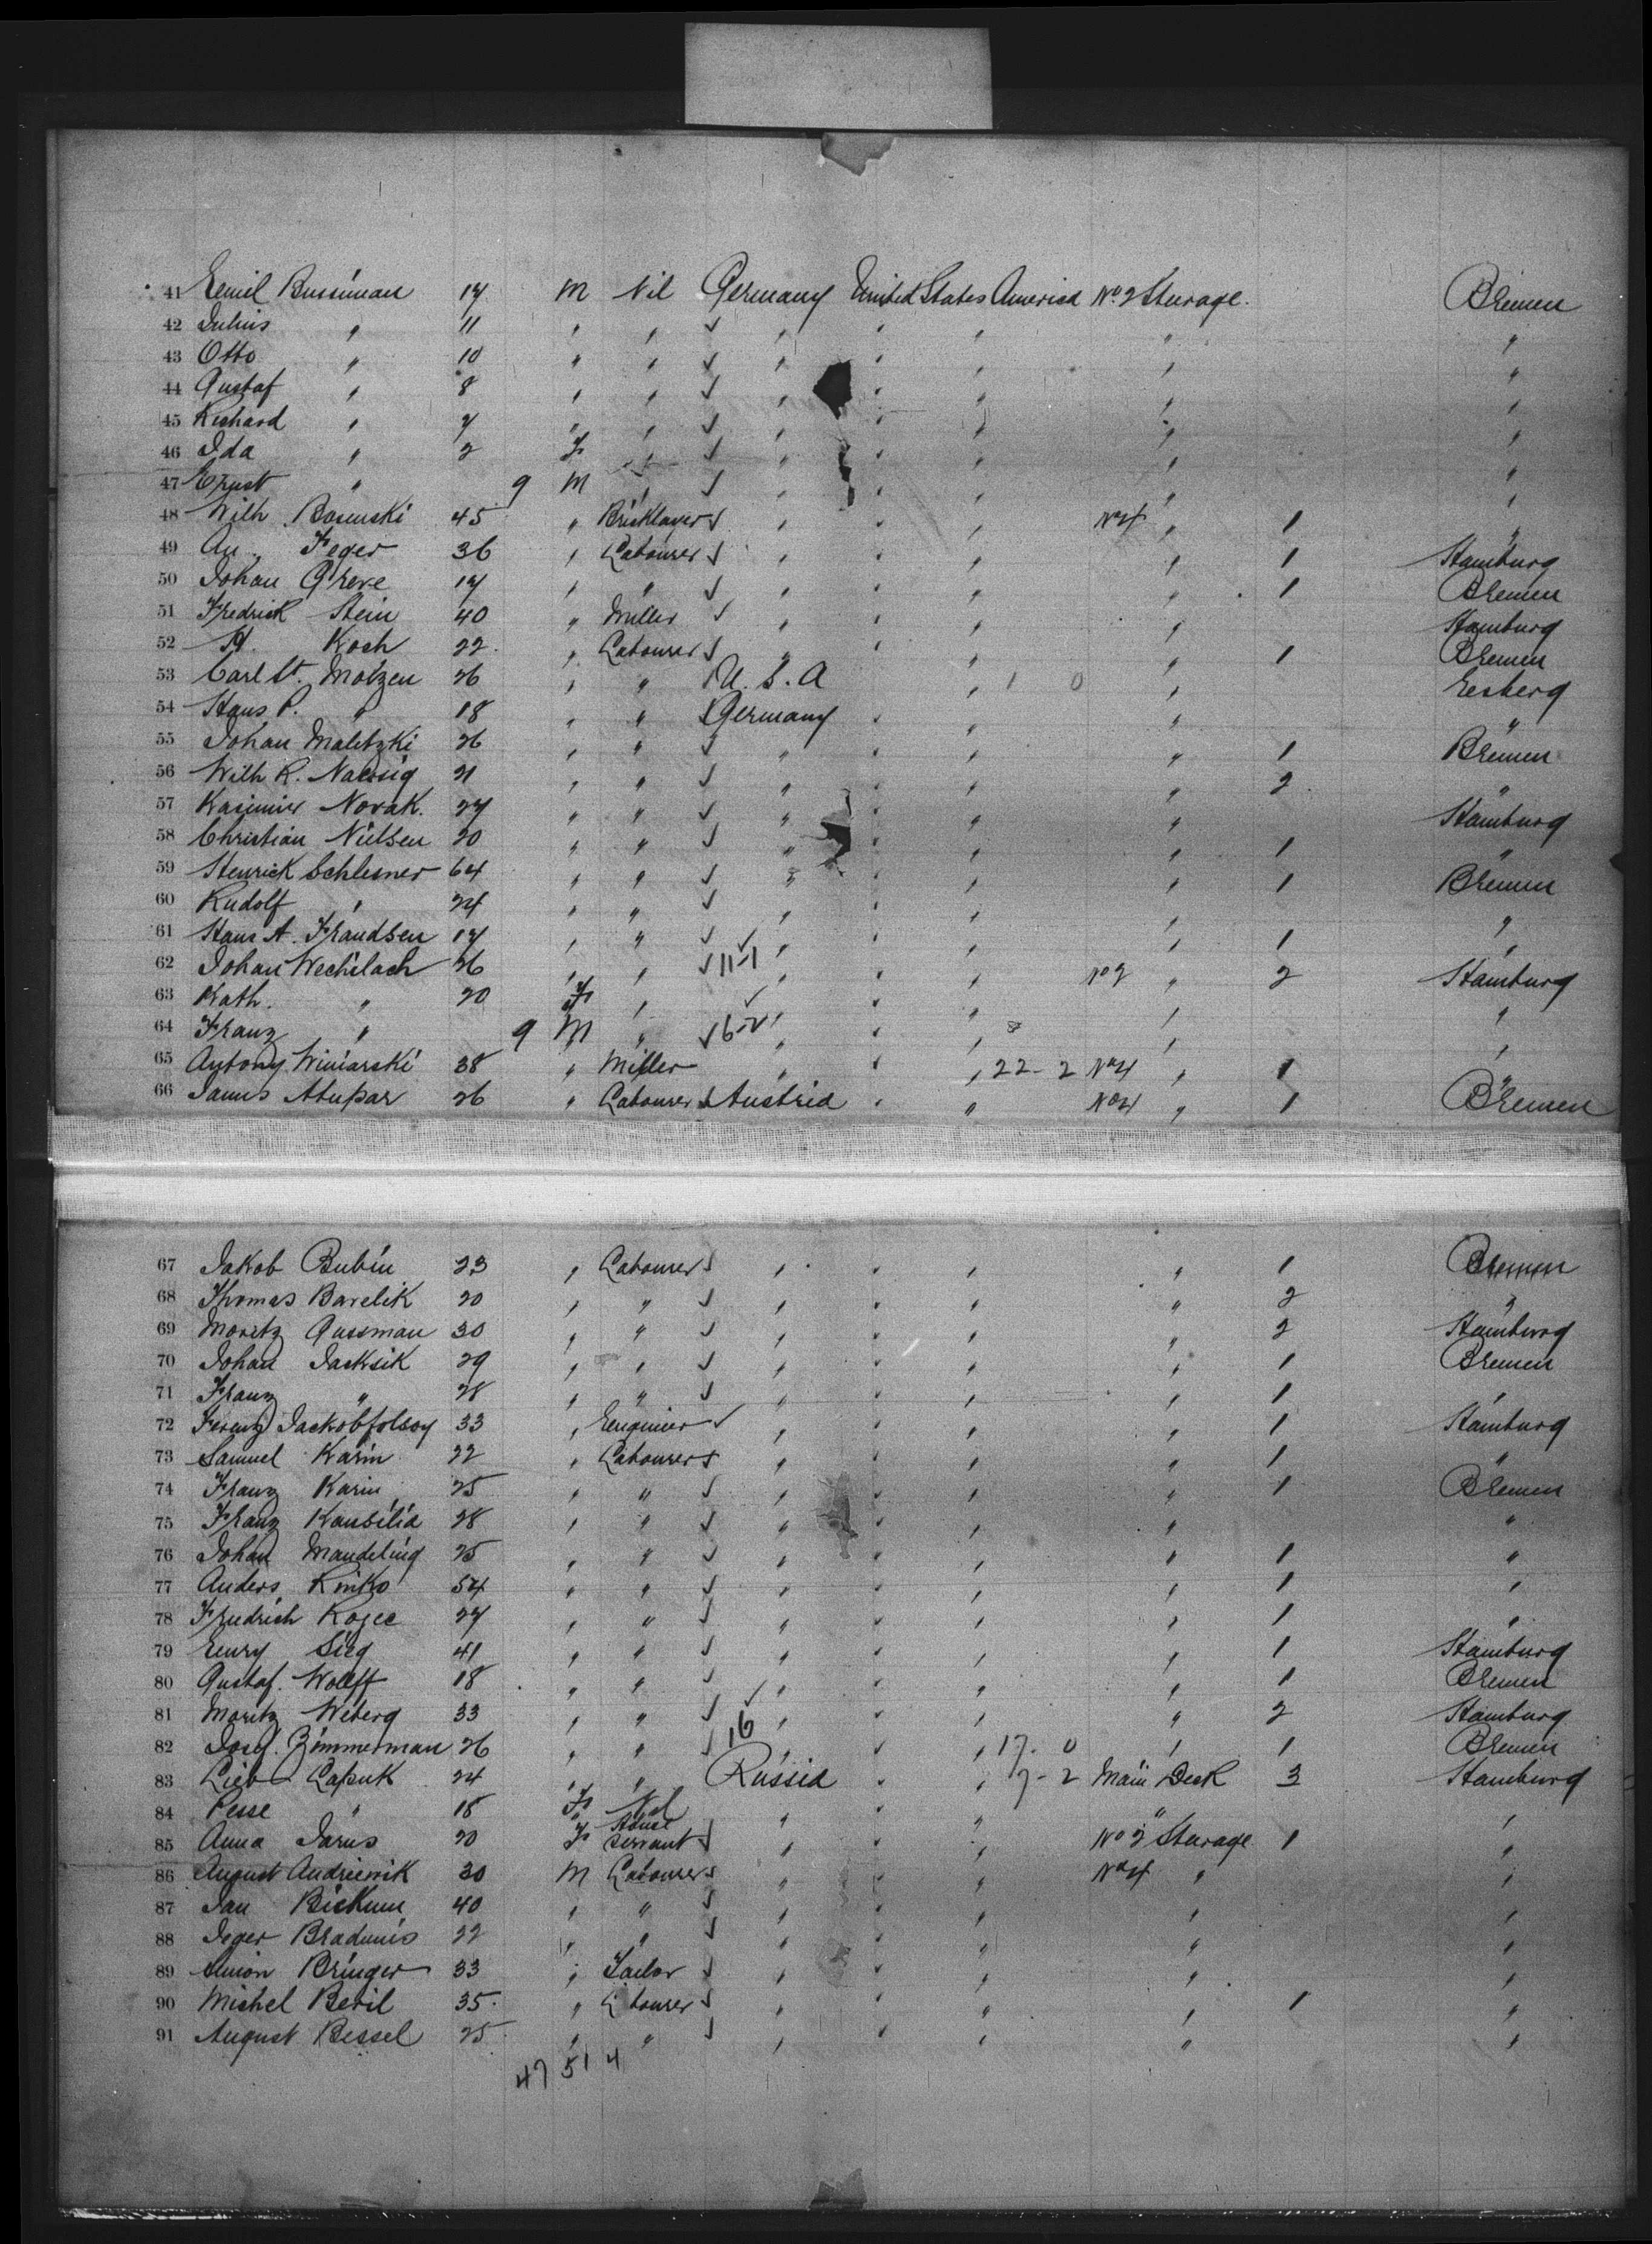 41 Emil Bussiman 17 M Nil Germany United States America No 2 Sturage. Bremen
42 Julius " 11 " " " " " " "
43 Otto " 10 " " " " " " "
44 Gustaf " 8 " " " " " " "
45 Richard " 7 " " " " " " "
46 Ida " 2 F " " " " " "
47 Ernst " 9 M " " " " " "
48 Wilh Bosenski 45 " Bricklayer " " " No 4 " 1 "
49 Au. Feger 36 " Labourer " " " " 1 Hamburg
50 Johan Greve 17 " " " " " " 1 Bremen
51 Fredrick Stein 40 " Miller " " " " Hamburg
52 H. Koch 22 " Labourer " " " " 1 Bremen
53 Carl St. Motzen 26 " " U.S.A " 1 0 " Eesberg
54 Hans P. " 18 " " Germany " " " "
55 Johan Maletzki 26 " " " " " " 1 Bremen
56 Wilh R. Naessig 21 " " " " " " 2 "
57 Kasimir Novak. 27 " " " " " " Hamburg
58 Christian Nielsen 20 " " " " " " 1 "
59 Henrick Schlesner 64 " " " " " " 1 Bremen
60 Rudolf " 24 " " " " " " "
61 Hans A. Frandsen 17 " " " " " " 1 "
62 Johan Wechslach 26 " " 11-1 " " " No 2 " 2 Hamburg
63 Kath. " 20 F " " " " " "
64 Franz " 9 M " 6-2 " " " " "
65 Antony Winiarski 38 " Miller " " " 22-2 No 4 " 1 "
66 Janus Stupar 26 " Labourer Austria " " No 4 " 1 Bremen
67 Jakob Bubin 23 " Labourer " " " " 1 Bremen
68 Thomas Barelik 20 " " " " " " 2 "
69 Moritz Gussman 30 " " " " " " 2 Hamburg
70 Johan Jacksik 29 " " " " " " 1 Bremen
71 Franz " 28 " " " " " " 1 "
72 Ferenz Jackobfolsoy 33 " Enginier " " " " 1 Hamburg
73 Samuel Karin 22 " Labourer " " " " 1 "
74 Franz Karin 25 " " " " " " 1 Bremen
75 Franz Kansilia 28 " " " " " " "
76 Johan Mandeling 25 " " " " " " 1 "
77 Anders Kinko 54 " " " " " " 1 "
78 Friedrich Kogee 27 " " " " " " 1 "
79 Henry Sieg 41 " " " " " " 1 Hamburg
80 Gustaf. Wolff 18 " " " " " " 1 Bremen
81 Moritz Weberg 33 " " " " " " 2 Hamburg
82 Josef. Zimmerman 26 " " 16 " " " 17-0 " 1 Bremen
83 Lieb Lapuk 24 " " Russia " " 7-2 Main Deck 3 Hamburg
84 Pesse " 18 F Nil " " " " "
85 Anna Jarus 20 F House servant " " " No 2 Sturage 1 "
86 August Andriewik 30 M Labourer " " " No 4 " "
87 Jan Bickum 40 " " " " " " "
88 Jeger Bradunis 22 " " " " " " "
89 Simon Bringer 33 " Tailor " " " " "
90 Michel Beril 35 " Labourer " " " " 1 "
91 August Bessel 25 " " " " " " "
47 51 4